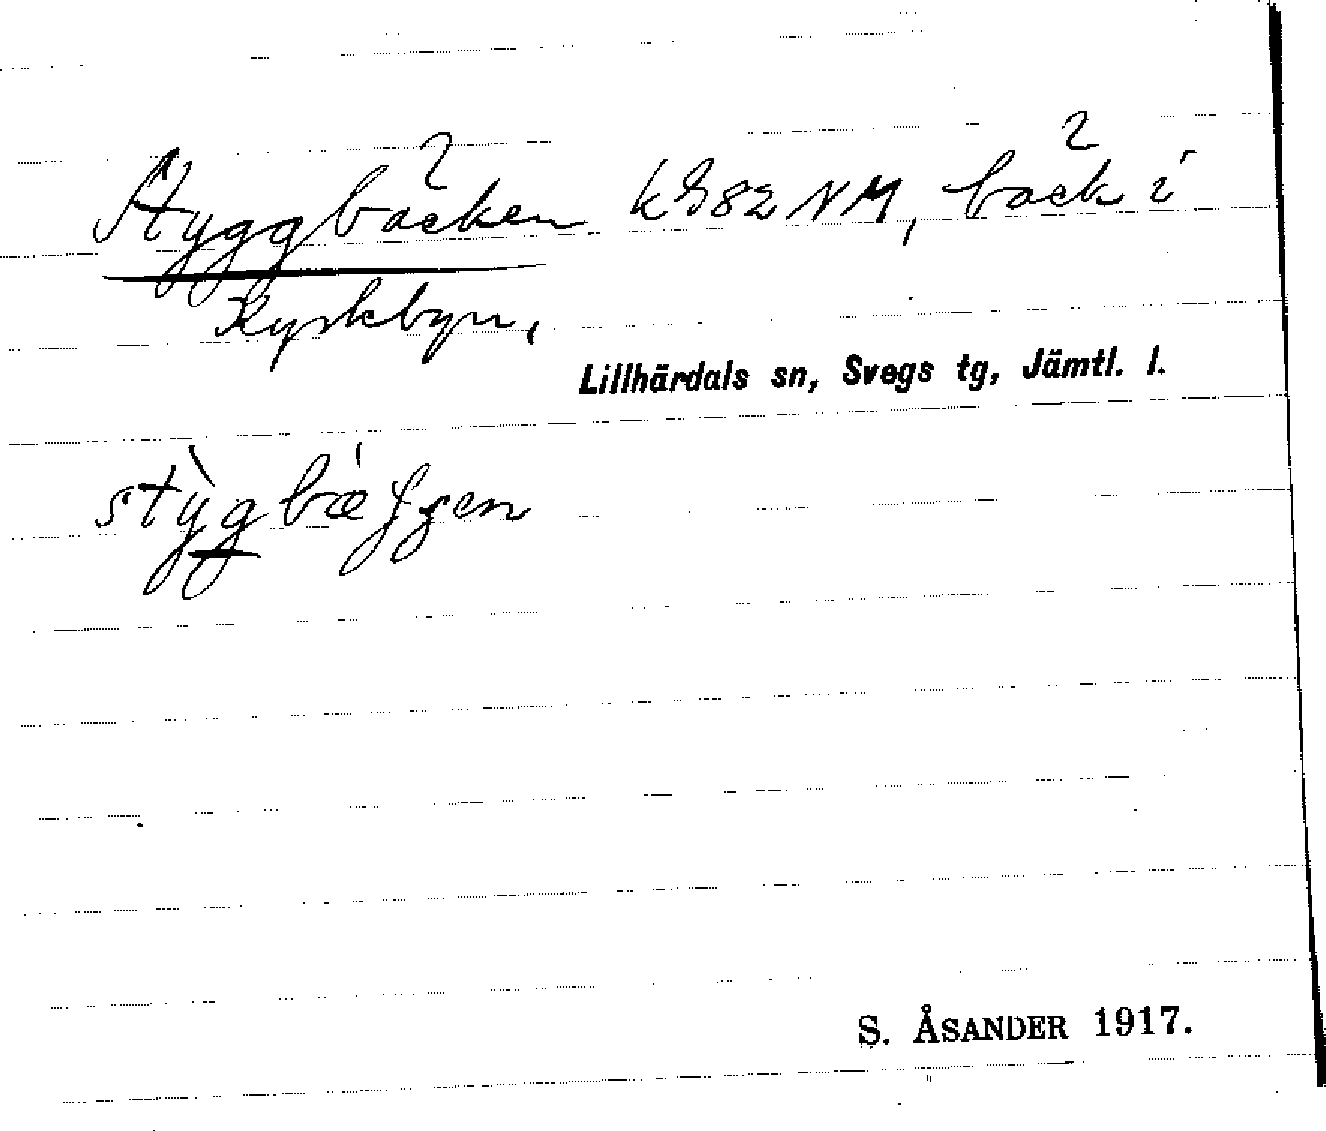 Styggbäcken kG82NM, bäck i
Kyrkbyn,
Lillhärdals sn, Svegs tg, Jämtl. l.
S. ÅSANDER 1917.